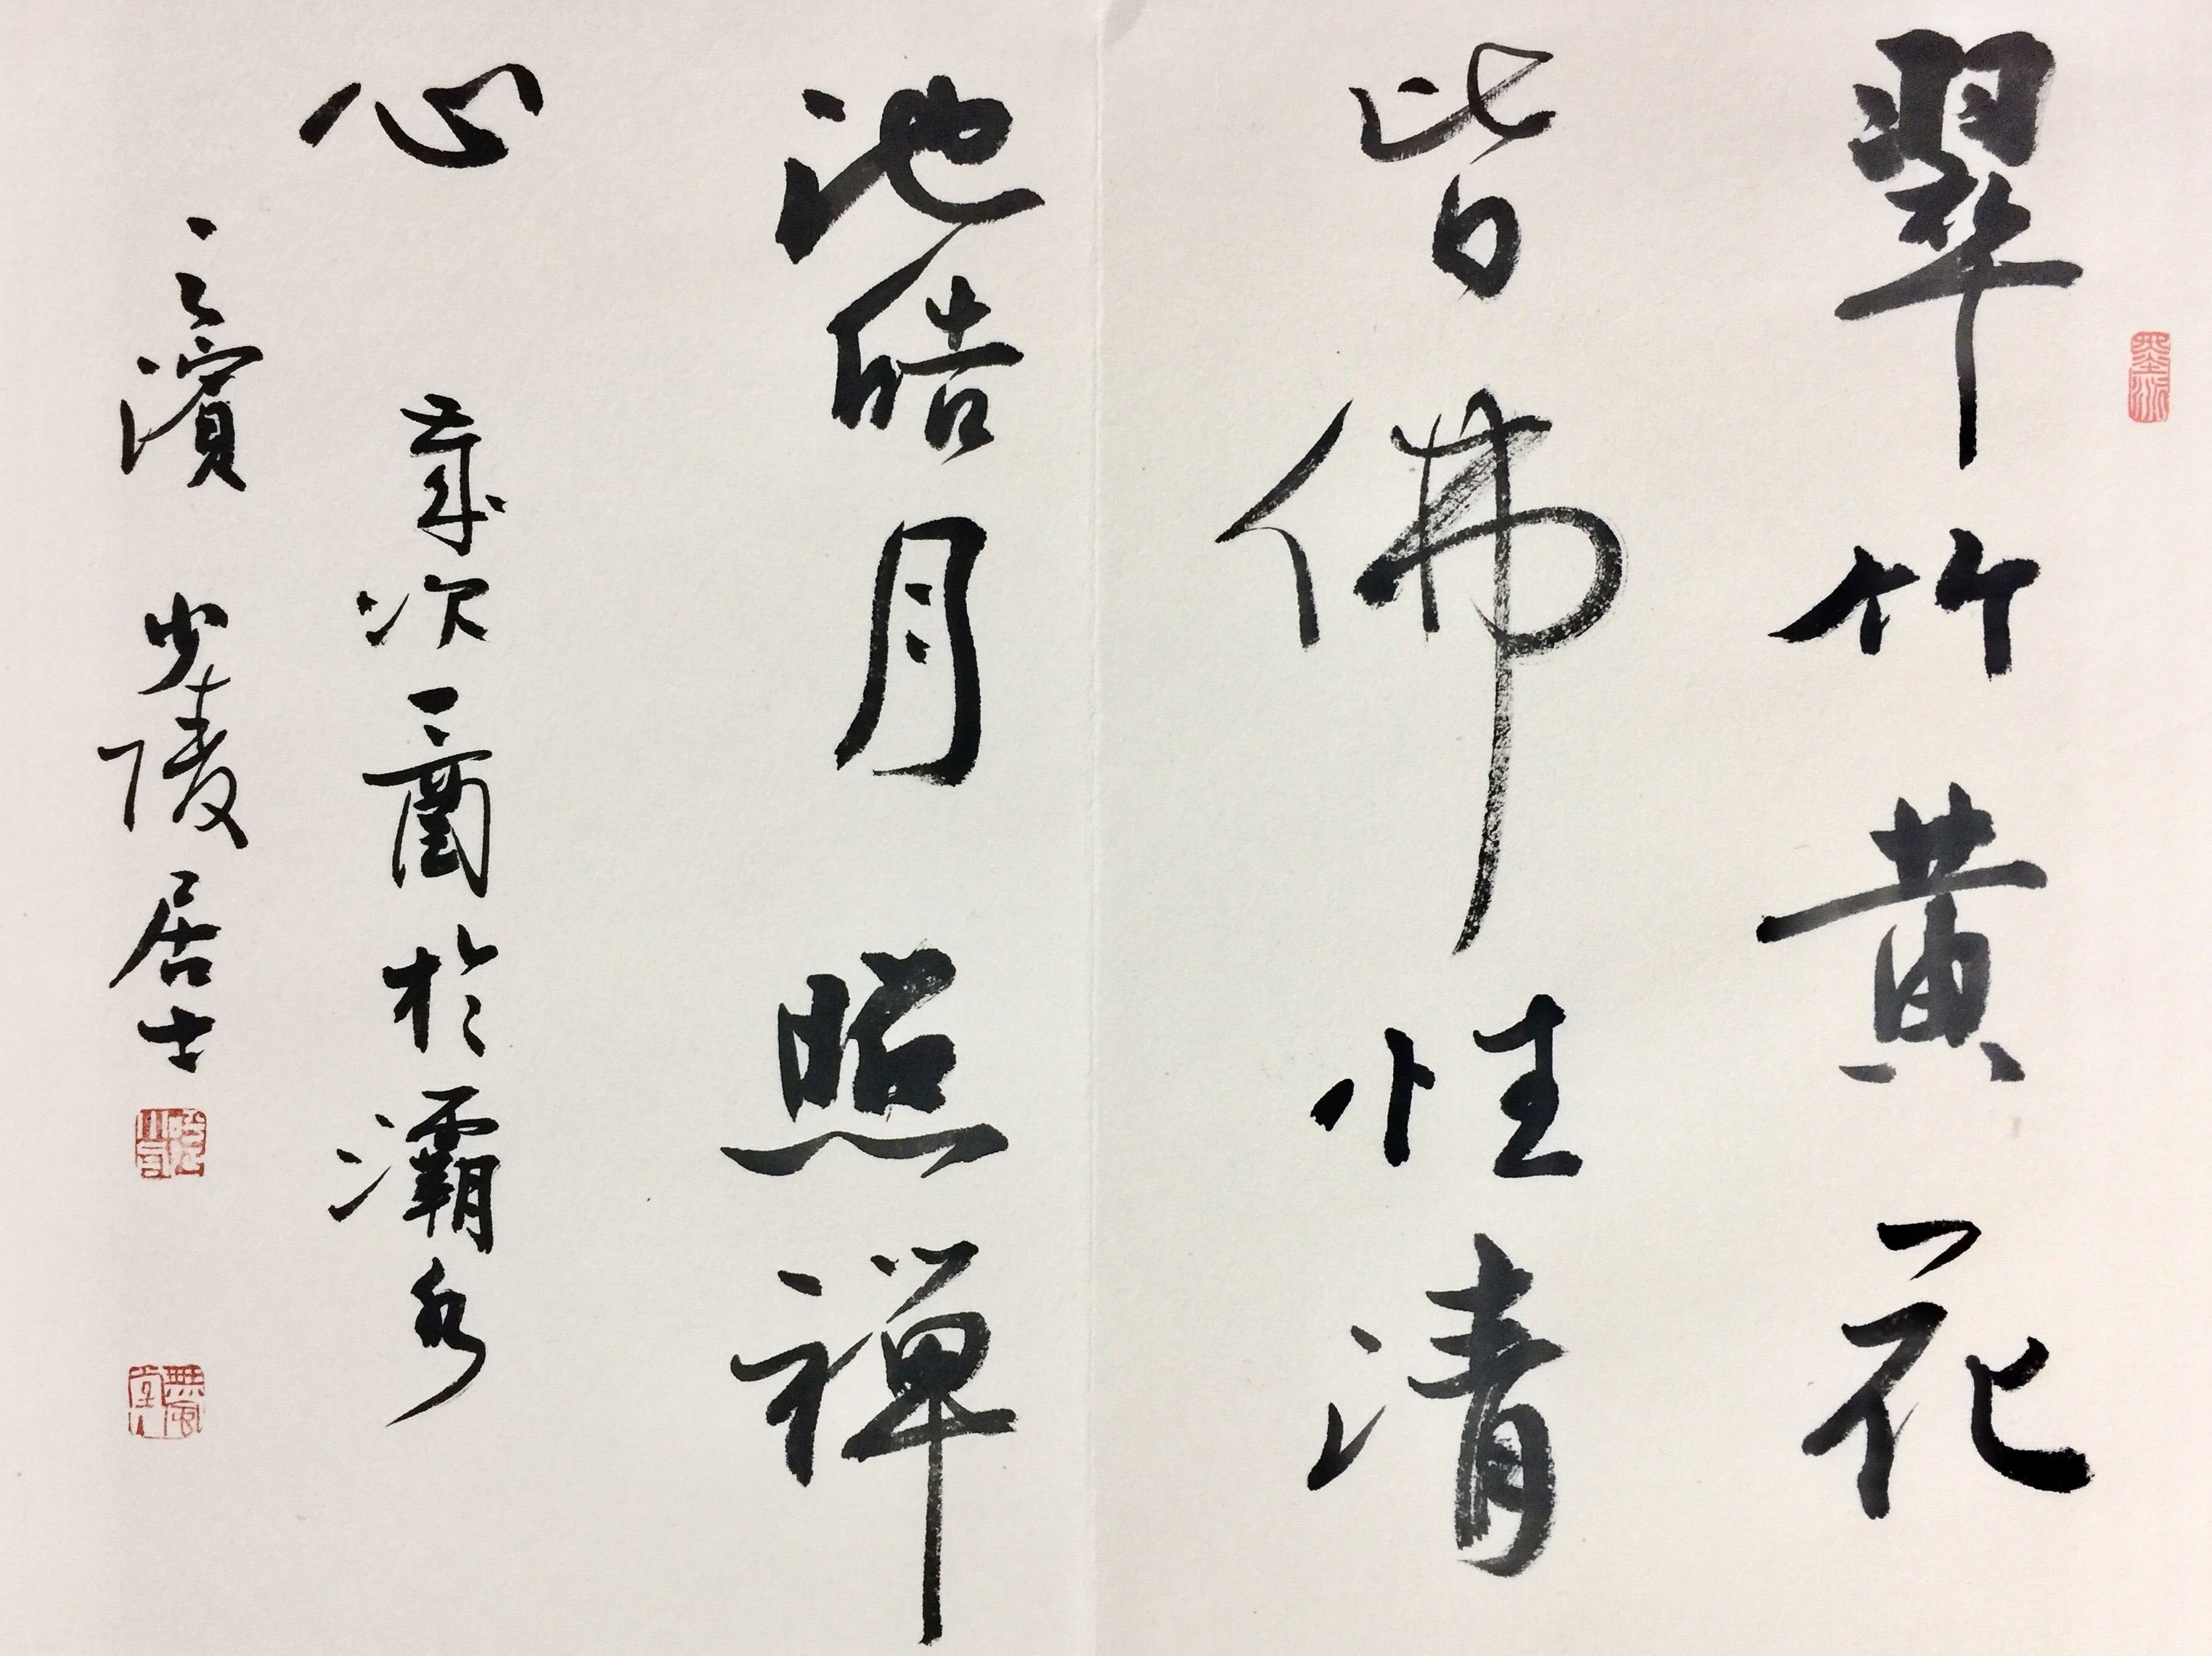 翠竹黃花
皆佛性清
池皓月照禅
心
歲次 於灞水
之濱 少陵居士